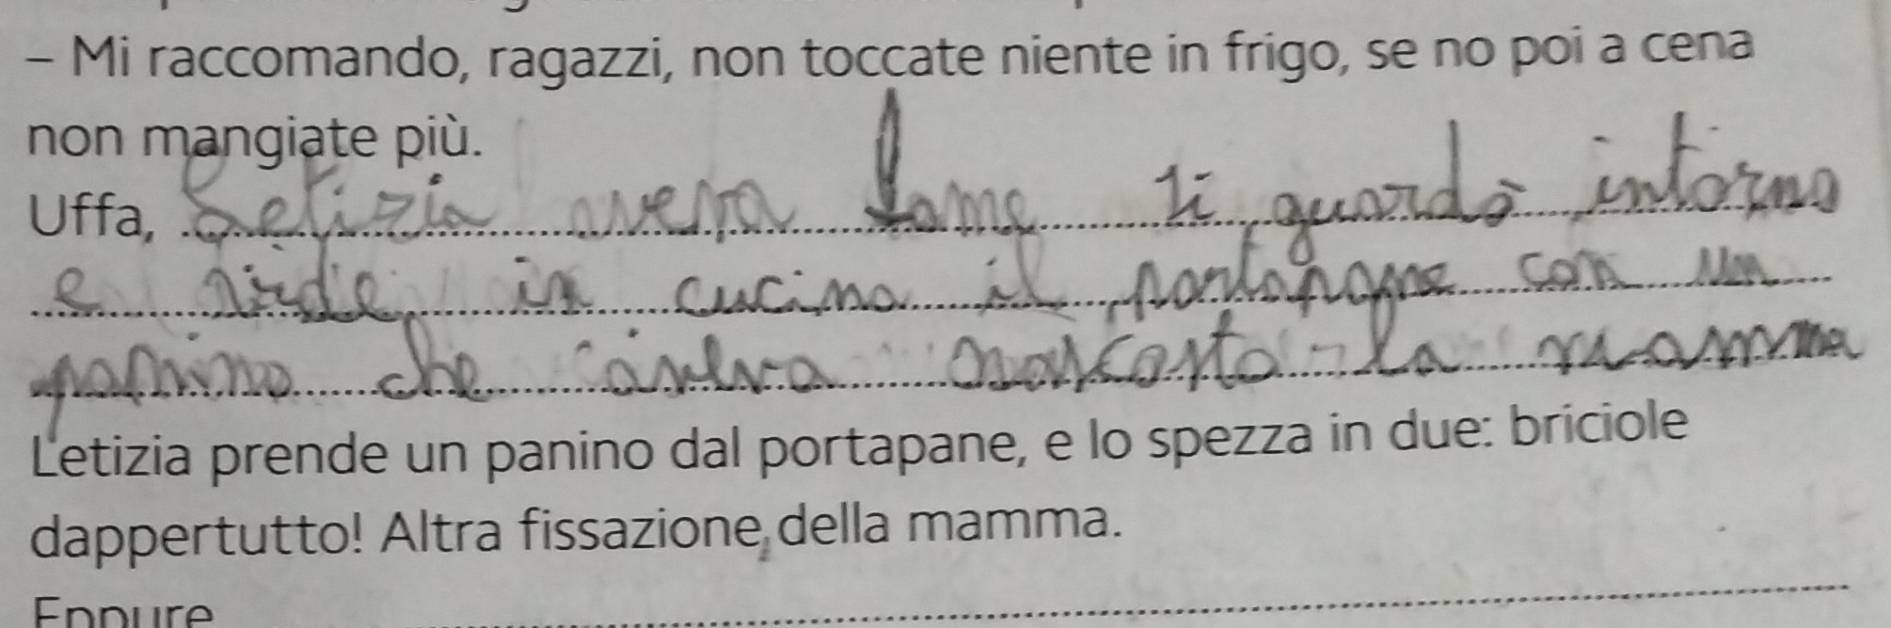 – Mi raccomando, ragazzi, non toccate niente in frigo, se no poi a cena
non mangiate più.
Uffa, Letizia aveva fame ti guardò intorno
e vide in cucina il portapane con un
panino che aveva nascosto la mamma
Letizia prende un panino dal portapane, e lo spezza in due: briciole
dappertutto! Altra fissazione della mamma.
Eppure